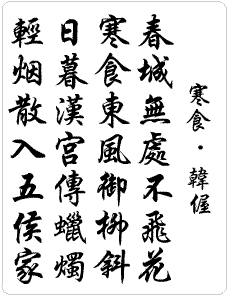 寒食·韓偓
春城無處不飛花
寒食東風御柳斜
日暮漢宮傳蠟燭
輕烟散入五侯家